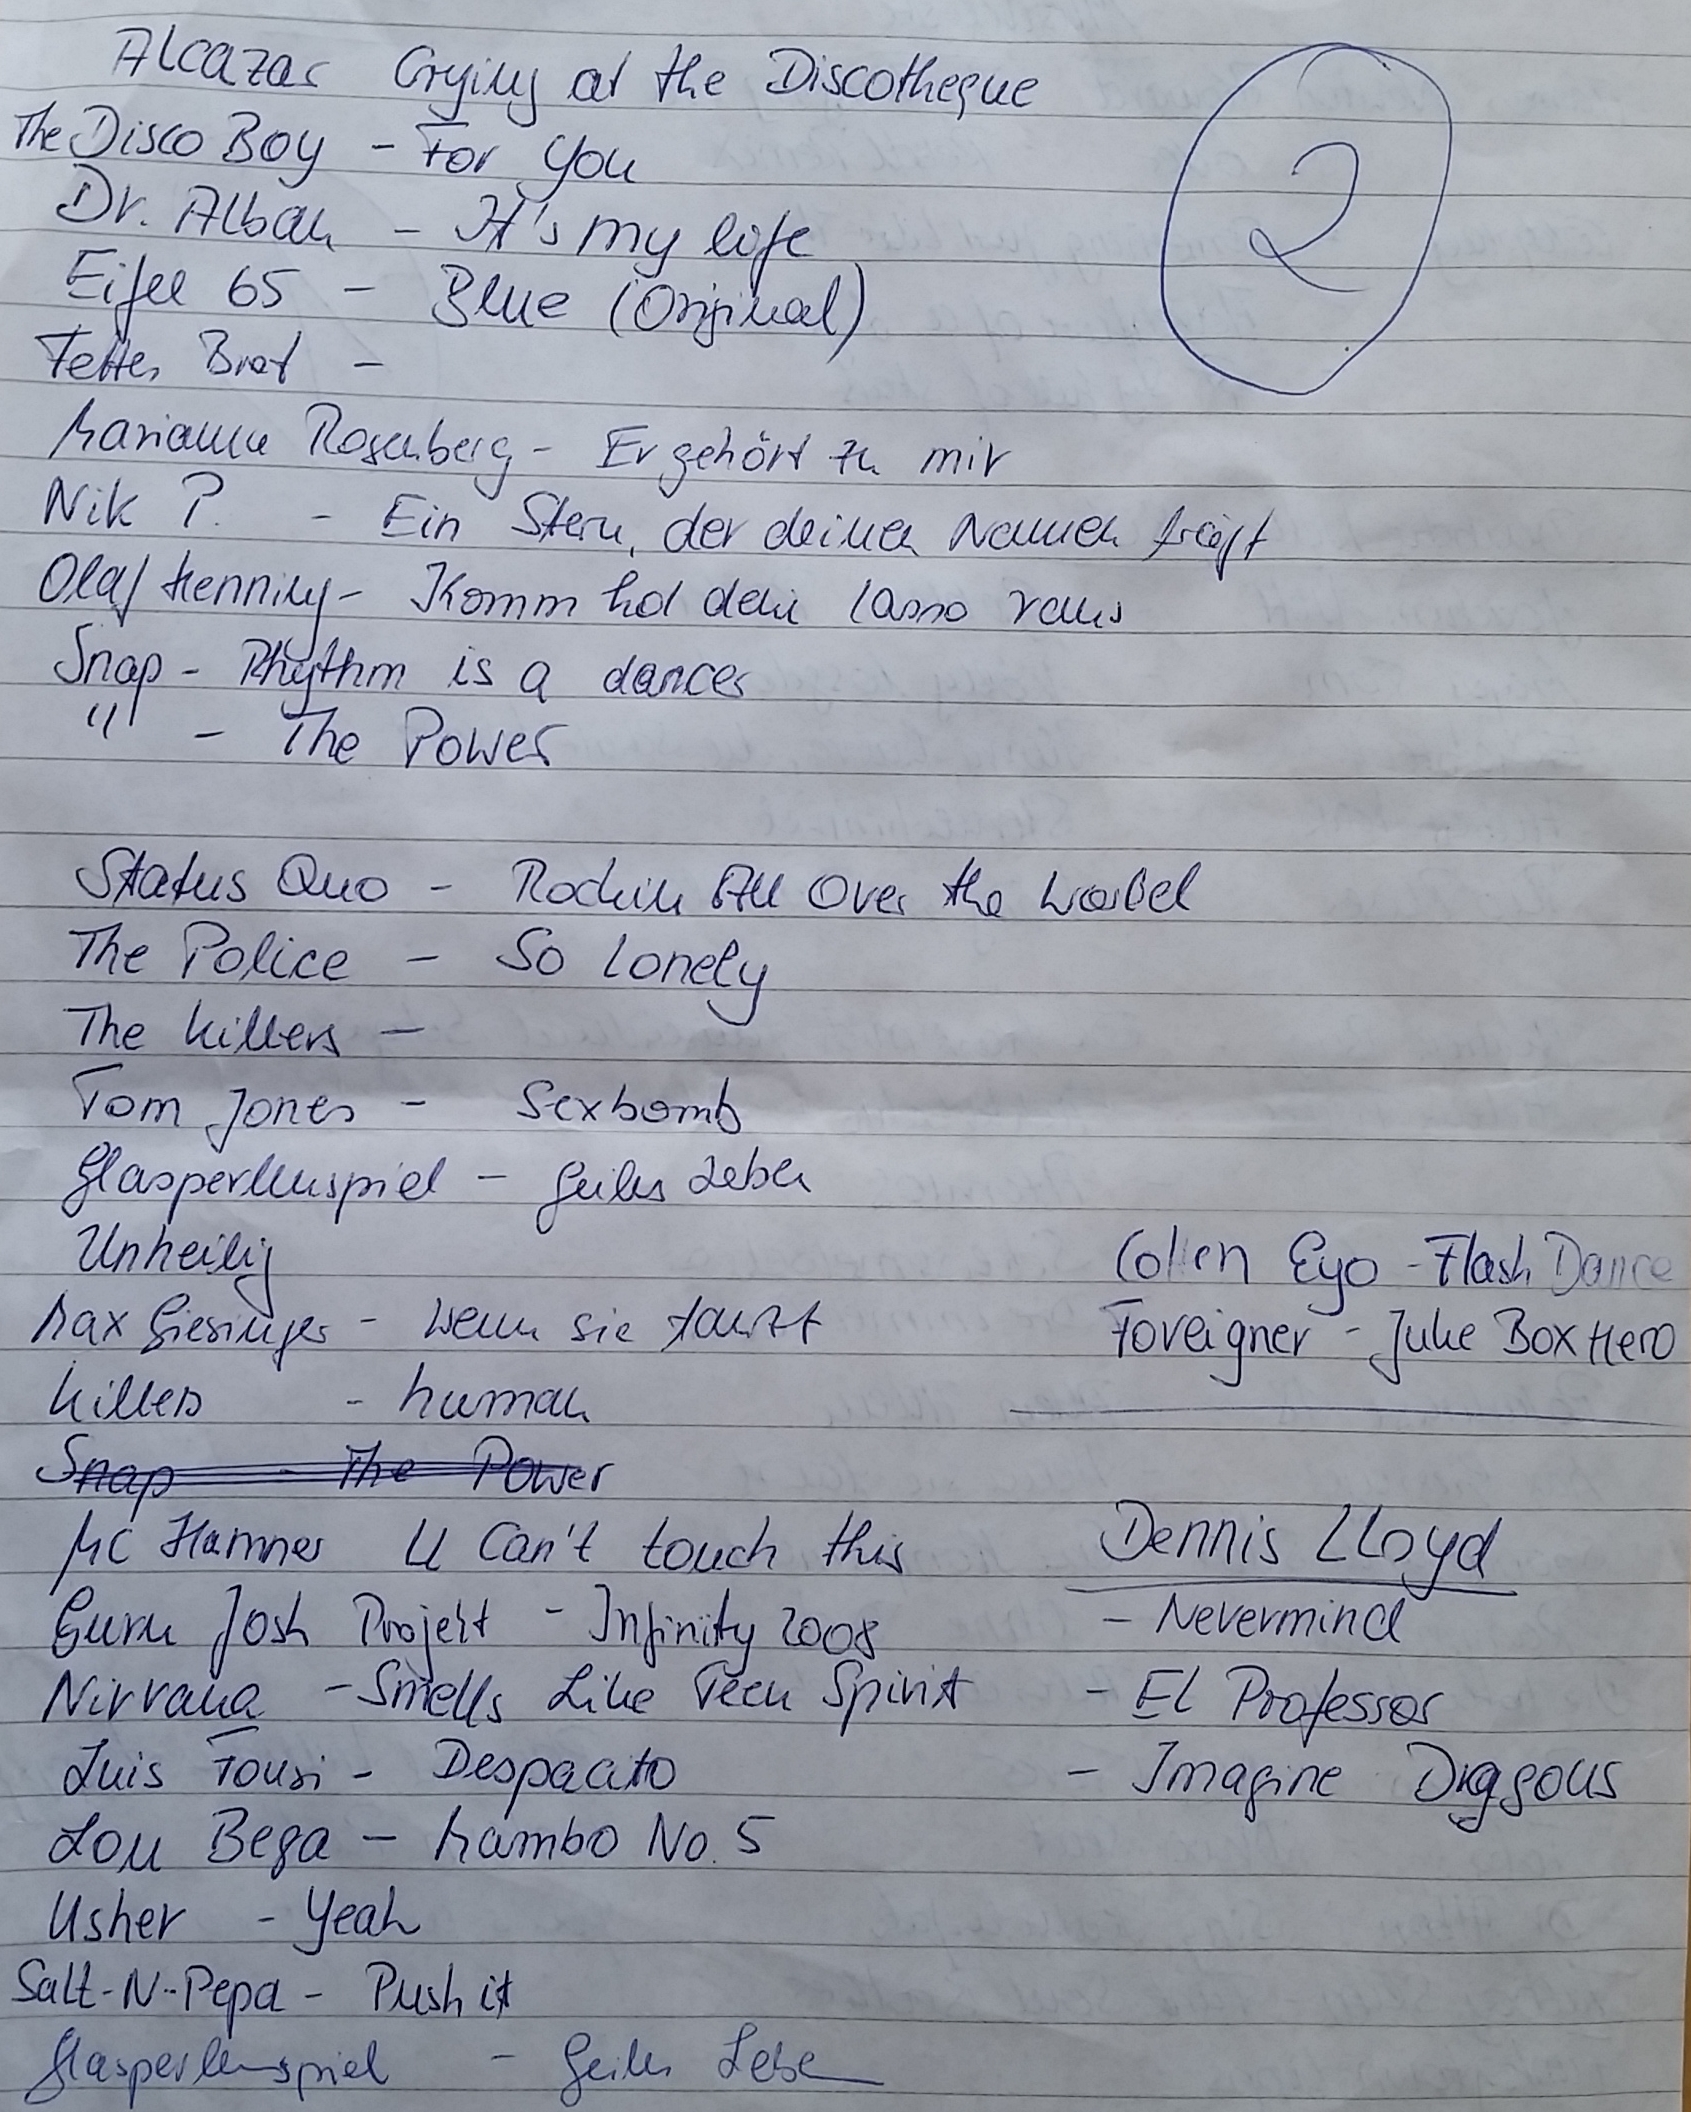 Alcazar Crying at the Discotheque
2
The Disco Boy - For you
Dr. Alban - It's my life
Eifel 65 - Blue (Original)
Fettes Brot -
Marianne Rosenberg - Er gehört zu mir
Nik P. - Ein Stern, der deinen Namen trägt
Olaf Henning - Komm hol dein lasso raus
Snap - Rhythm is a dancer
" - The Power
Status Quo - Rockin All Over the
The Police - So lonely
The Killers -
Tom Jones - Sexbomb
Glasperlenspiel - Geiles Leben
Unheilig
Max Giesinger - wenn sie tanzt
Killers - human
Snap - The Power
MC Hammer U Can't touch this
Guru Josh Projekt - Infinity 2008
Nirvana - Smells Like Teen Spirit
Luis Fonsi - Despacito
Lou Bega - Mambo No. 5
Usher - Yeah
Salt-N-Pepa - Push it
Glasperlenspiel - Geiles Leben
Eyo - Flash Dance
Foreigner - Juke Box Hero
Dennis Lloyd
- Nevermind
- El Professor
- Imagine